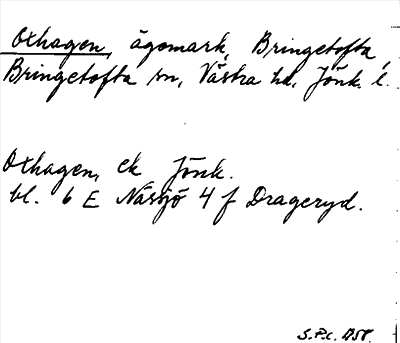 Oxhagen, ägomark, Bringetofta
Bringetofta sn, Västra hd, Jönk. l.
Oxhagen, ek Jönk.
bl. 6 E Nässjö 4 f Drageryd.
S.P.C. 1958.